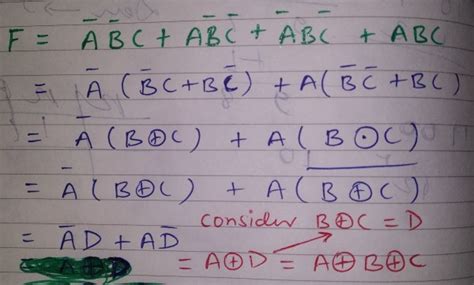 F = A̅B̅C + AB̅C̅ + A̅BC̅ + ABC
= A̅ (B̅C+BC̅) + A(B̅C̅+BC)
= A̅ (B⊕C) + A( B⊙C)
= A̅ ( B⊕C) + A( B̅ ⊕̅ C̅)
consider B⊕C = D
= A̅D + AD̅
= A⊕D = A⊕B⊕C